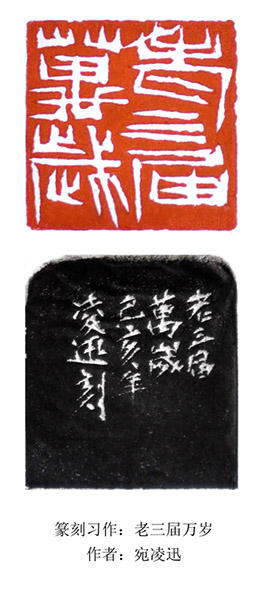 老三届
萬歲
老三届
萬歲
己亥年
凌迅刻
篆刻习作：老三届万岁
作者：宛凌迅